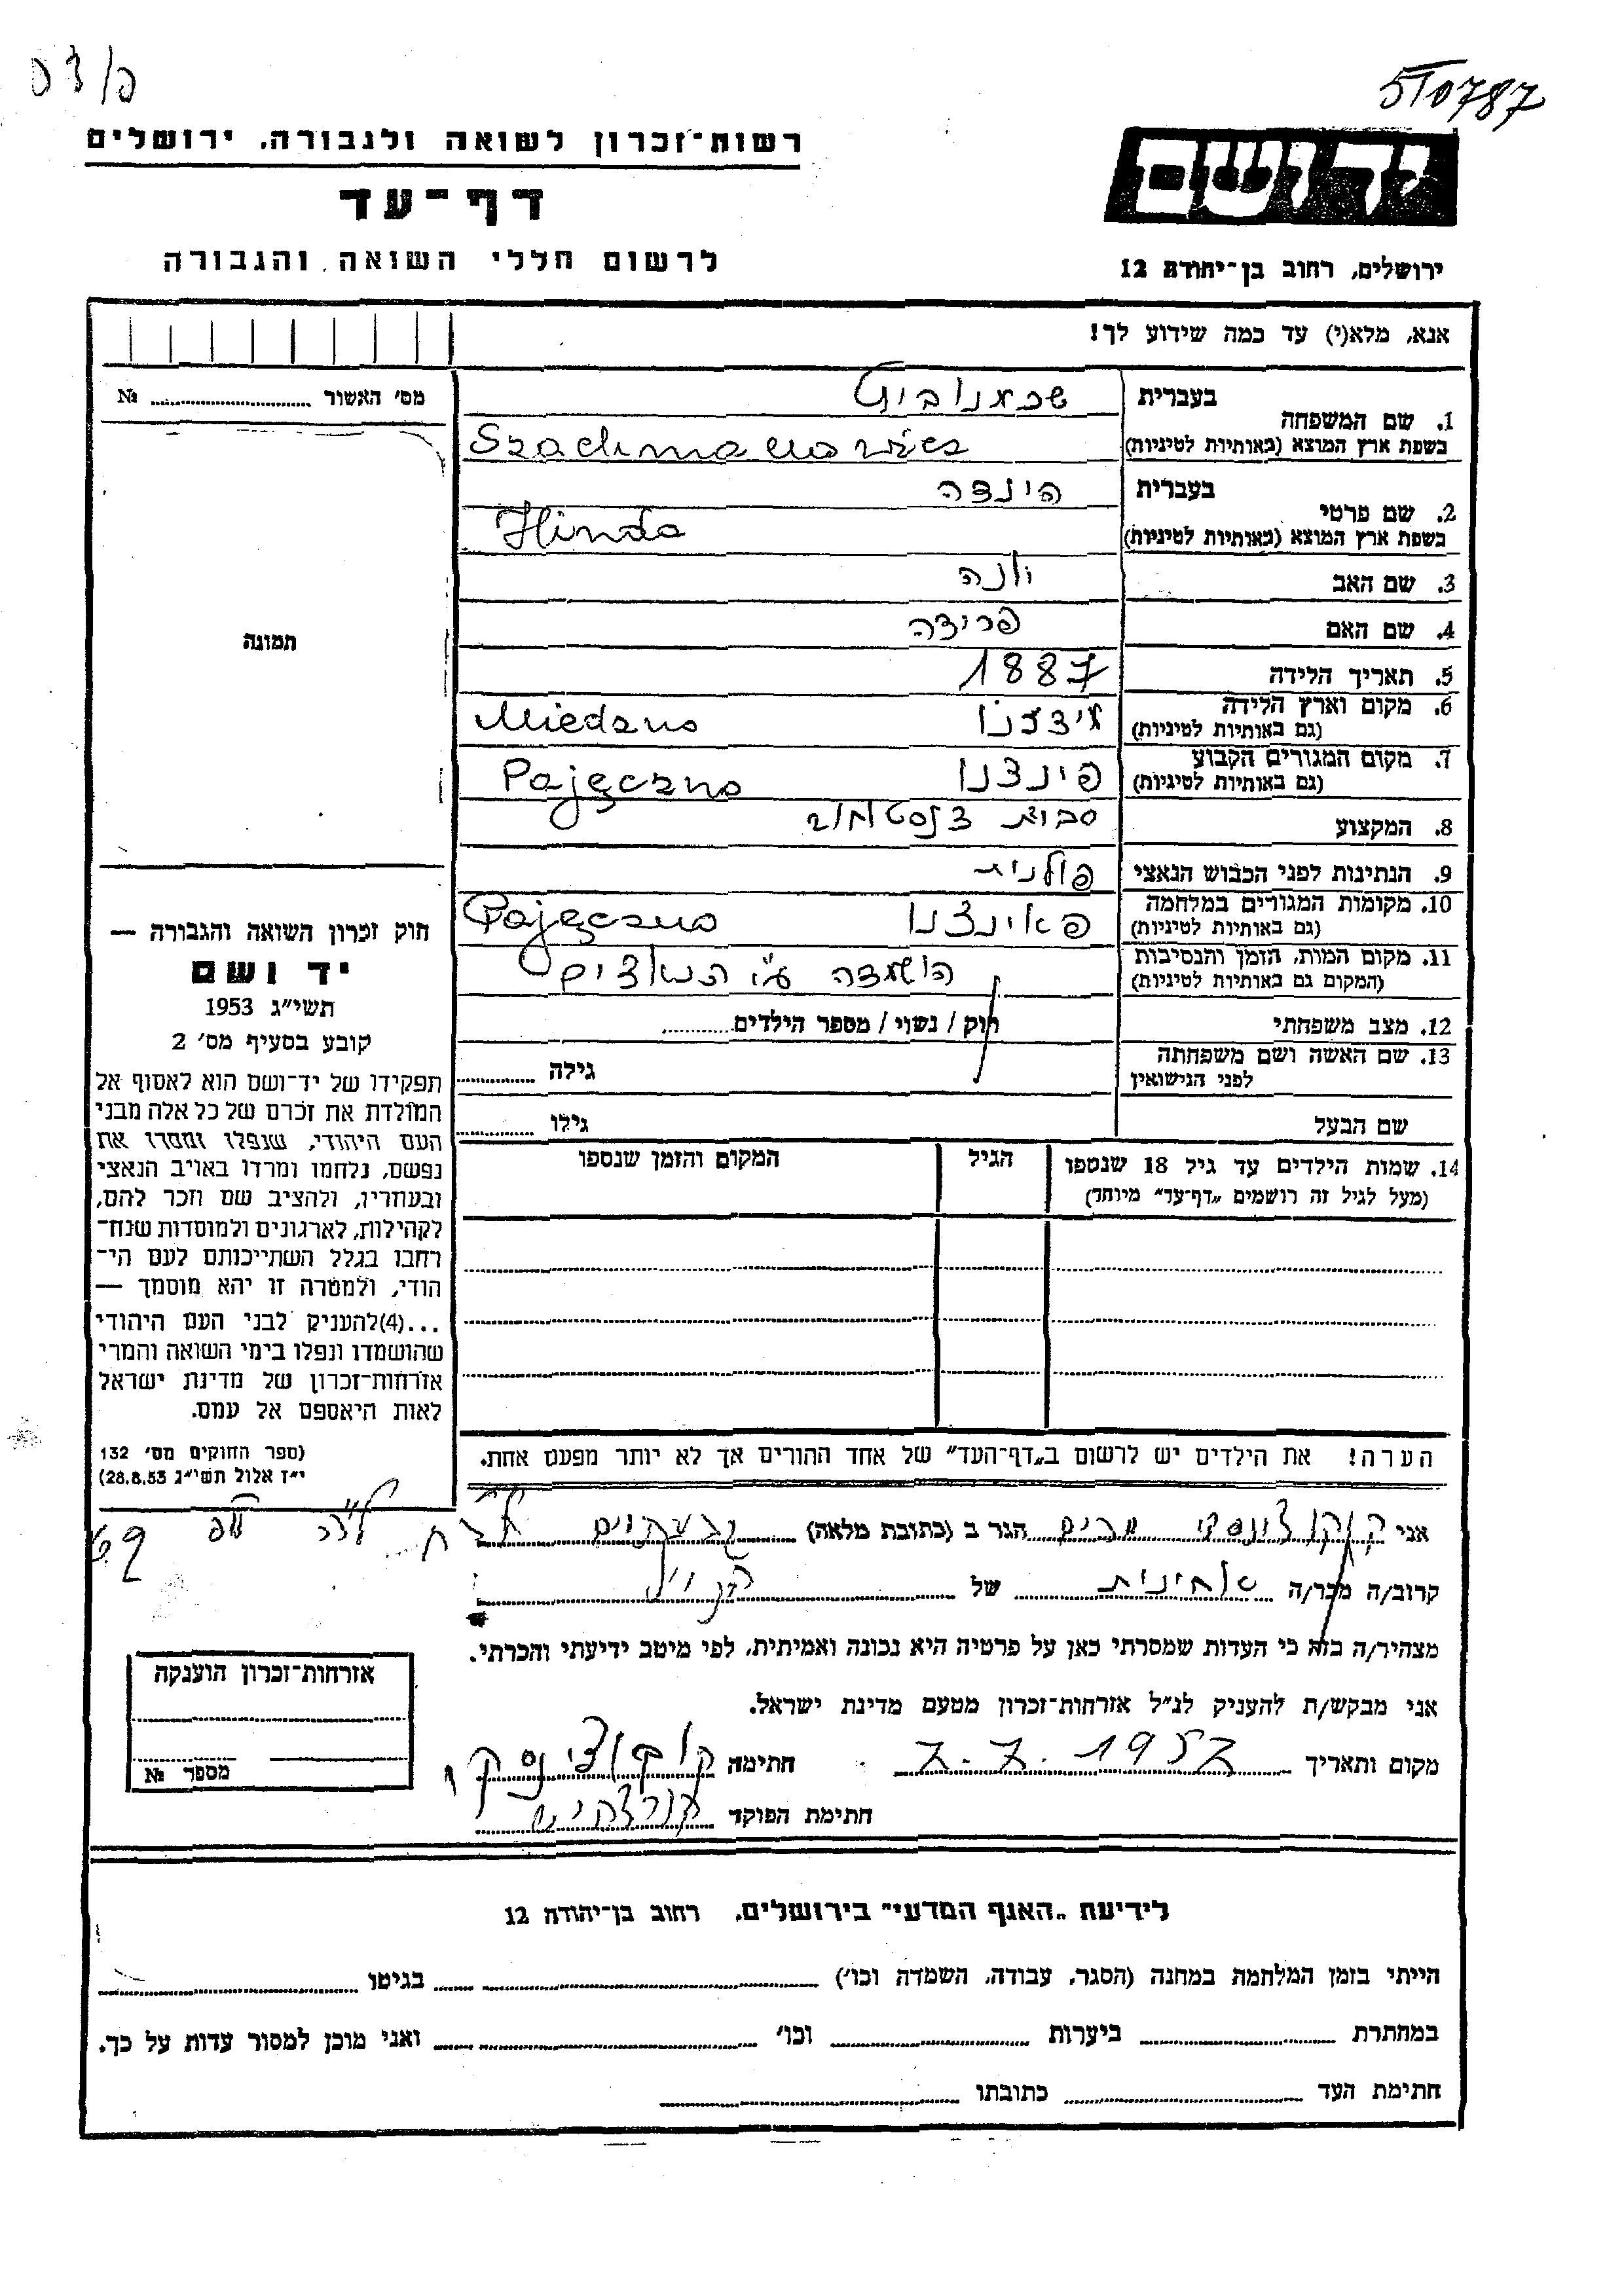 5710787
רשות-זכרון לשואה ולגבורה, ירושלים
דף-עד
לרשום חללי השואה והגבורה
יד ושם
ירושלים, רחוב בן-יהודה 12
אנא, מלא(י) עד כמה שידוע לך!
מס׳ האשור № 
1. שם המשפחה בעברית
בשפת ארץ המוצא (באותיות לטיניות)
שכמנוביץ
2. שם פרטי בעברית הינדה
בשפת ארץ המוצא (באותיות לטיניות) Hinda
3. שם האב
4. שם האם פרידה
5. תאריך הלידה 1887
6. מקום וארץ הלידה
(גם באותיות לטיניות)
7. מקום המגורים הקבוע
(גם באותיות לטיניות) פינצנו Pajęczno
8. המקצוע
9. הנתינות לפני הכבוש הנאצי פולנית
10. מקומות המגורים במלחמה
(גם באותיות לטיניות) פאינצנו Pajęczno
11. מקום המות, הזמן והנסיבות
(המקום גם באותיות לטיניות) הושמדה ע״י הנאצים
12. מצב משפחתי רווק / נשוי / מספר הילדים
13. שם האשה ושם משפחתה
לפני הנישואין גילה
שם הבעל גילו
14. שמות הילדים עד גיל 18 שנספו הגיל המקום והזמן שנספו
(מעל לגיל זה רושמים „דף-עד״ מיוחד)
הערה! את הילדים יש לרשום ב„דף-העד״ של אחד ההורים אך לא יותר מפעם אחת.
תמונה
חוק זכרון השואה והגבורה —
יד ושם
תשי״ג 1953
קובע בסעיף מס׳ 2
תפקידו של יד-ושם הוא לאסוף אל
המולדת את זכרם של כל אלה מבני
העם היהודי, שנפלו ומסרו את
נפשם, נלחמו ומרדו באויב הנאצי
ובעוזריו, ולהציב שם וזכר להם,
לקהילות, לארגונים ולמוסדות שנח-
רבו בגלל השתייכותם לעם הי-
הודי, ולמטרה זו יהא מוסמך —
...(4) להעניק לבני העם היהודי
שהושמדו ונפלו בימי השואה והמרי
אזרחות-זכרון של מדינת ישראל
לאות היאספם אל עמם.
(ספר החוקים מס׳ 132
י״ז אלול תשי״ג 28.8.53)
אני מרים הגר ב (כתובת מלאה) גבעתיים
קרוב/ה מכר/ה של
מצהיר/ה בזה כי העדות שמסרתי כאן על פרטיה היא נכונה ואמיתית, לפי מיטב ידיעתי והכרתי.
אני מבקש/ת להעניק לנ״ל אזרחות-זכרון מטעם מדינת ישראל.
מקום ותאריך 7.7.1957 חתימה
חתימת הפוקד
אזרחות-זכרון הוענקה
מספר №
לידיעת „האגף המדעי״ בירושלים, רחוב בן-יהודה 12
הייתי בזמן המלחמה במחנה (הסגר, עבודה, השמדה וכו׳) בגיטו
במחתרת ביערות וכו׳ ואני מוכן למסור עדות על כך.
חתימת העד כתובתו